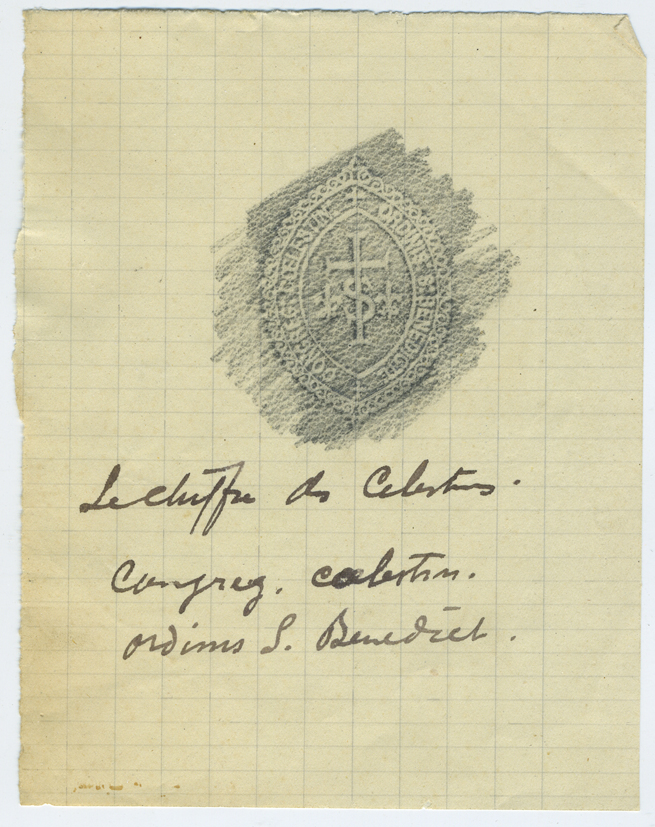 CONGREG CELESTIN
ORDINIS S BENEDICTI
Le chiffre des Celestins.
Congreg. coelestin.
ordinis S. Benedict.